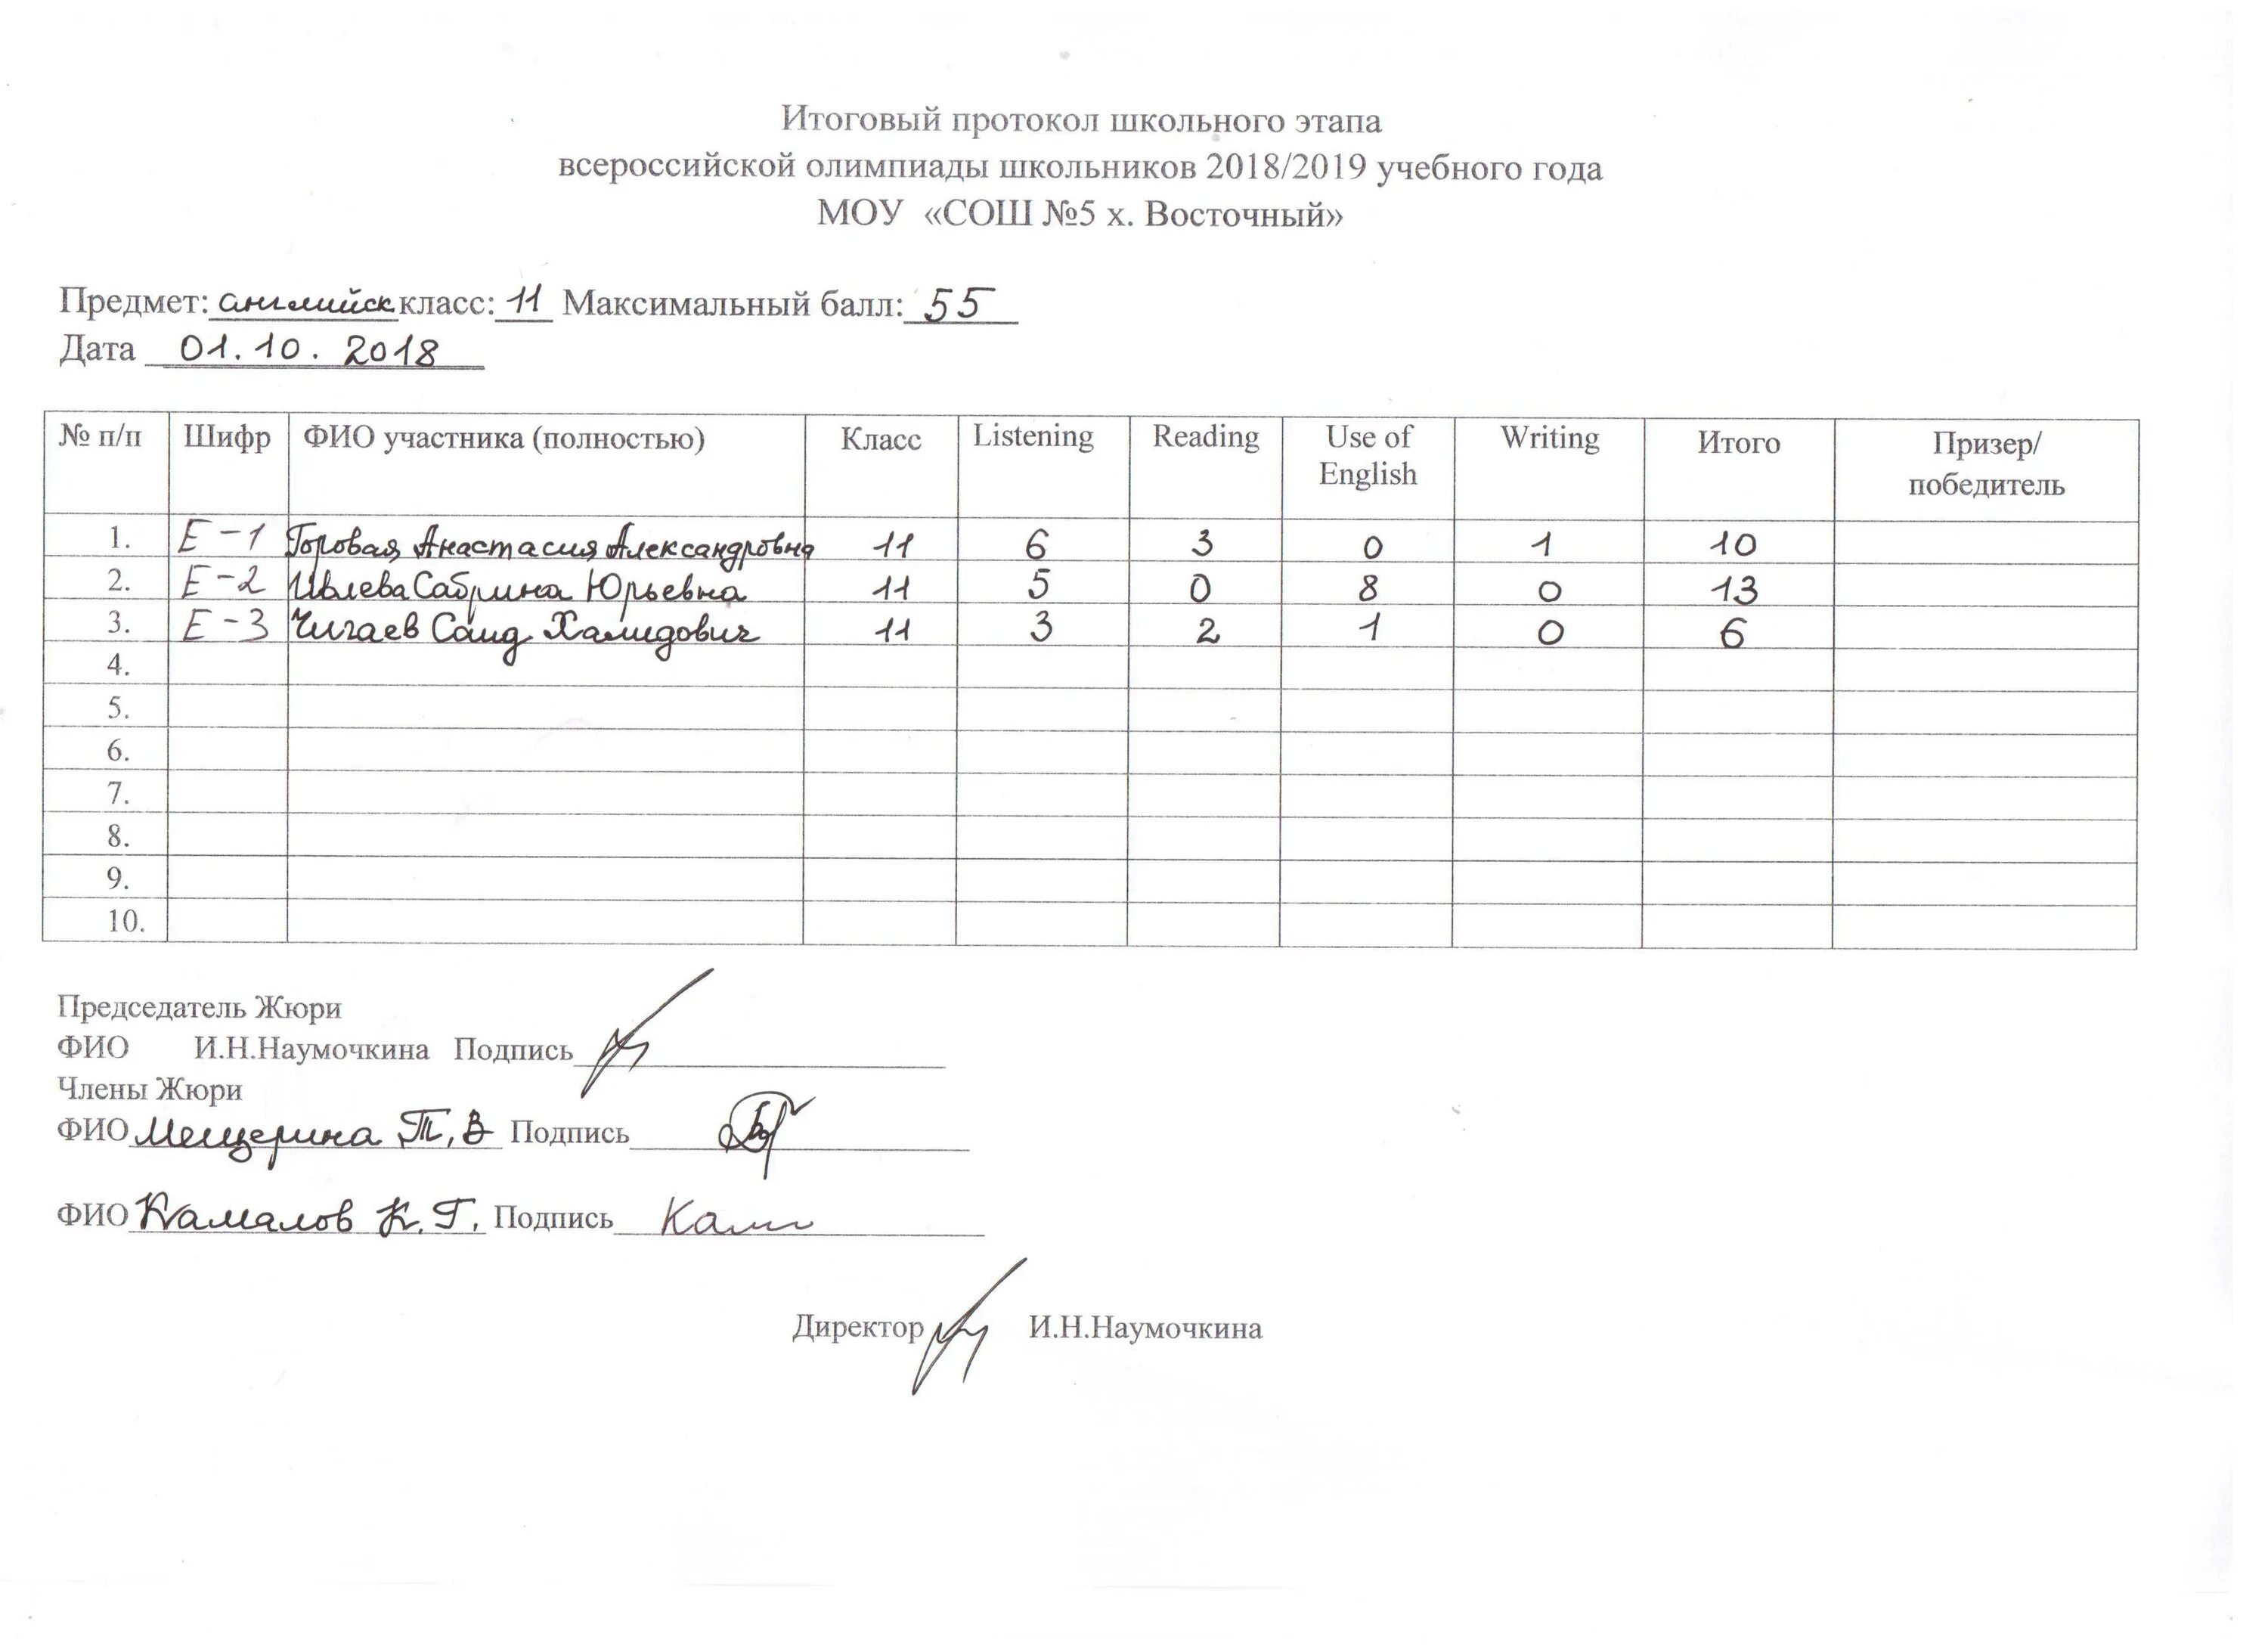 Итоговый протокол школьного этапа
всероссийской олимпиады школьников 2018/2019 учебного года
МОУ «СОШ №5 х. Восточный»
Предмет: английск класс: 11 Максимальный балл: 55
Дата 01.10.2018
№ п/п Шифр ФИО участника (полностью) Класс Listening Reading Use of English Writing Итого Призер/ победитель
1. Е-1 Горовая Анастасия Александровна 11 6 3 0 1 10
2. Е-2 Ивлева Сабрина Юрьевна 11 5 0 8 0 13
3. Е-3 Чигаев Саид Халидович 11 3 2 1 0 6
4.
5.
6.
7.
8.
9.
10.
Председатель Жюри
ФИО И.Н.Наумочкина Подпись
Члены Жюри
ФИО Мещерина Т.В Подпись
ФИО Камалов К.Г. Подпись
Директор И.Н.Наумочкина